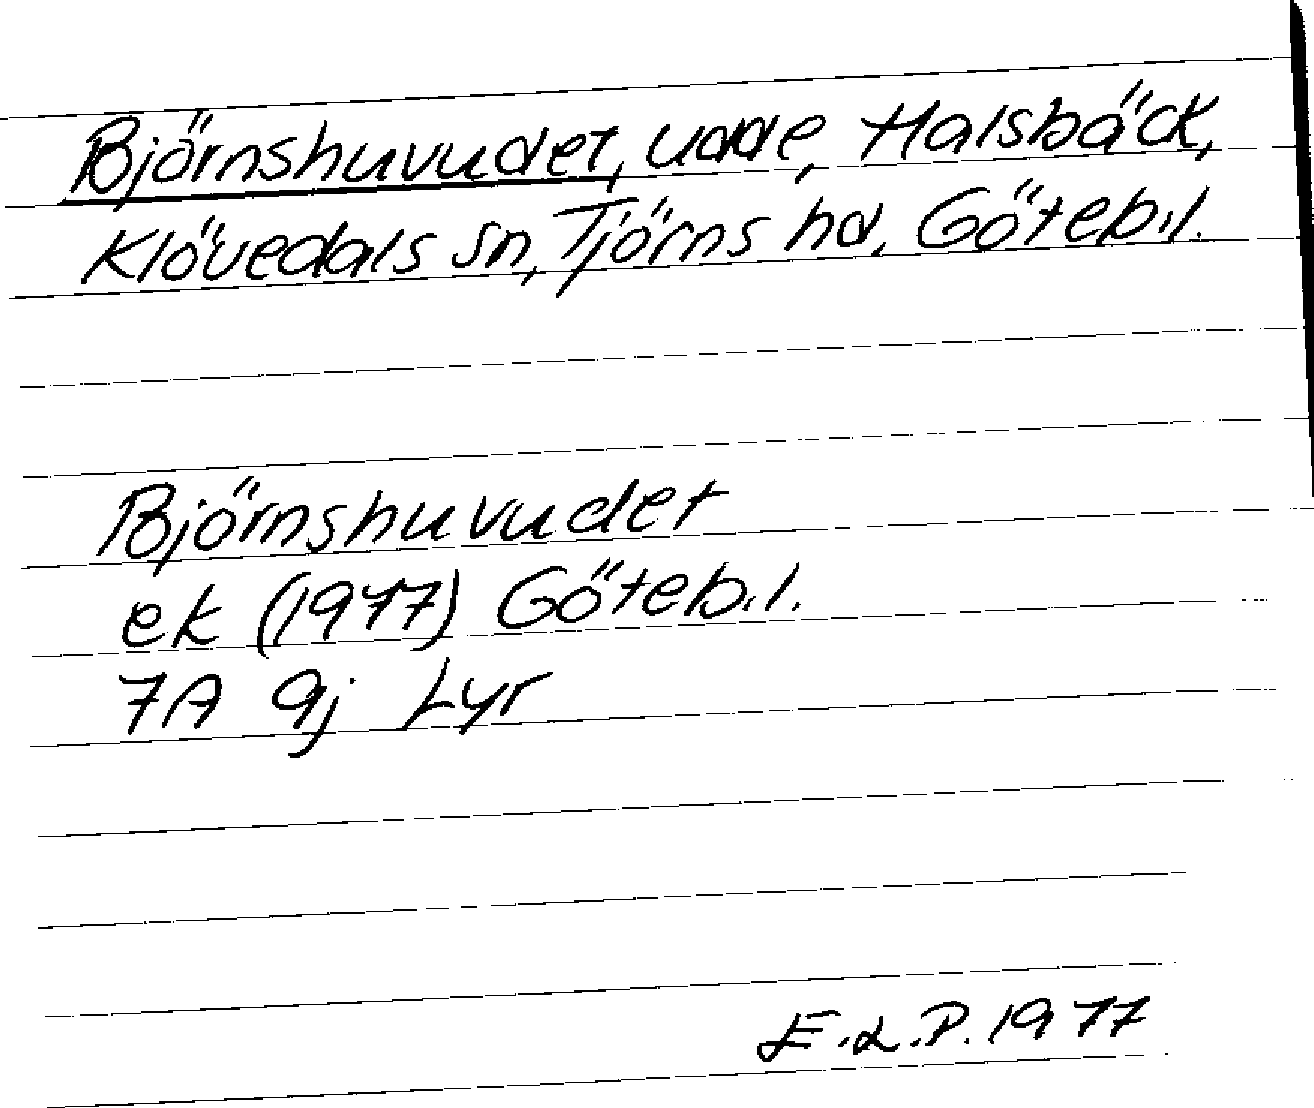 Björnshuvudet, udde, Halsbäck,
Klövedals sn, Tjörns hd, Göteb.l.
Björnshuvudet
ek (1977) Göteb.l.
7A 9j Lyr
E.L.P. 1977